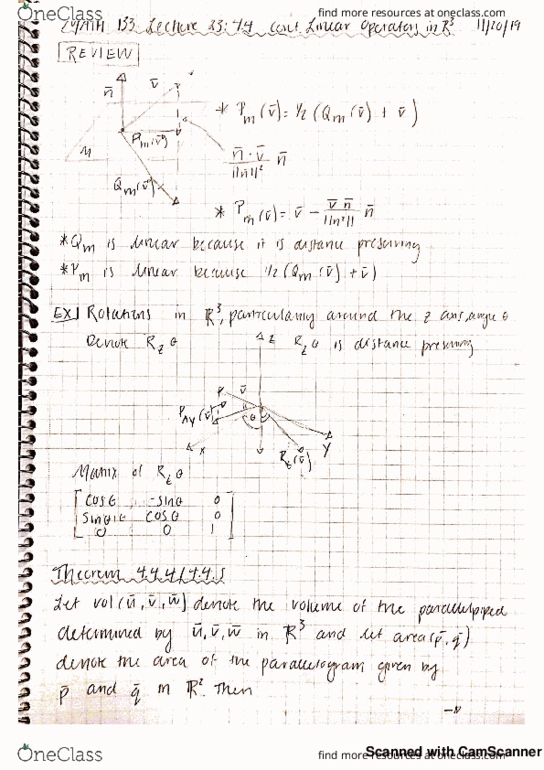 OneClass
find more resources at oneclass.com
133 Lecture 23: 4.4 cont. Linear Operators in R³ 11/20/19
REVIEW
n̄ v̄
* Pm(v̄) = 1/2 (Qm(v̄) + v̄)
Pm(v̄)
M
n̄ · v̄ / ||n||² n̄
Qm(v̄)
* Pm(v̄) = v̄ - v̄ n̄ / ||n²|| n̄
*Qm is linear because it is distance preserving
*Pm is linear because 1/2 (Qm(v̄) + v̄)
EX] Rotations in R³, particularly around the z axis, angle θ
Denote Rzθ
z Rzθ is distance preserving
P v̄
(v̄) θ
x y
(v̄)
Matrix of Rzθ
[ cosθ -sinθ 0
sinθ cosθ 0
0 0 1 ]
Theorem 4.4.4/4.4.5
Let vol(ū, v̄, w̄) denote the volume of the parallelpiped
determined by ū, v̄, w̄ in R³ and let area(p̄, q̄)
denote the area of the parallelogram given by
p̄ and q̄ in R². Then
OneClass
find more resources at oneclass.com
Scanned with CamScanner